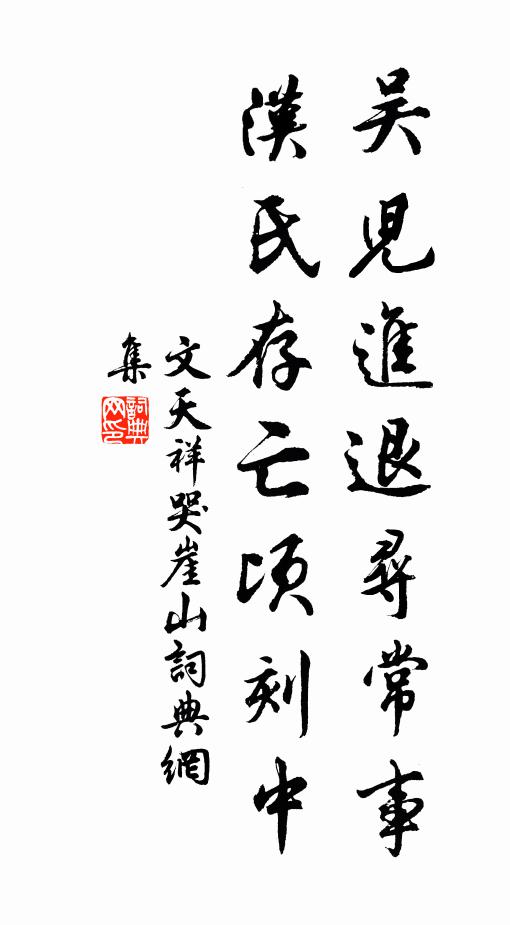 吴兒進退尋常事
漢氏存亡頃刻中
文天祥哭崖山詞典網
集
詞典
网印